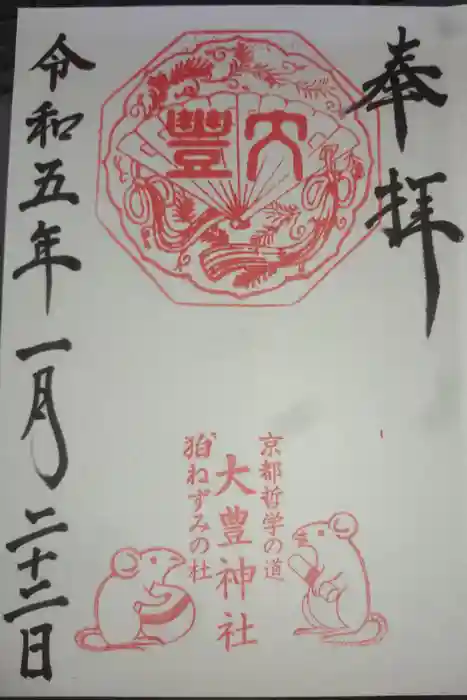 奉拝
大豐
京都哲学の道
大豊神社
狛ねずみの杜
令和五年一月二十二日